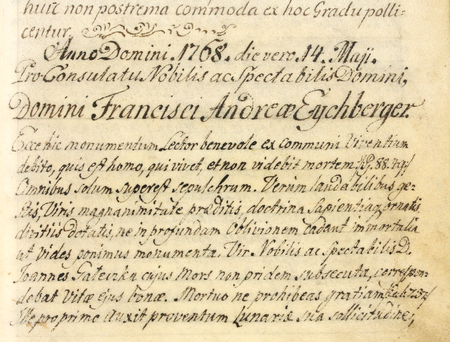 huic non postrema commoda ex hoc Gradu polli-
centur.
Anno Domini 1768. die vero 14. Maji.
Pro Consulatu Nobilis ac Spectabilis Domini,
Domini Francisci Andreæ Eychberger.
Ecce hic monumentum Lector benevole ex communi Viventium
debito, quis est homo, qui vivet, et non videbit mortem 88.
Omnibus solum superest sepulchrum. Verum laudabilibus ge-
stis, Viris magnanimitate præditis, doctrina Sapientiaq
divitiis dotatis, ne in profundam Oblivionem cadant immortalia
ut vides ponimus monumenta. Vir Nobilis ac Spectabilis D.
Joannes cujus Mors non pridem subsecuta, correspon-
debat Vitæ ejus bonæ. Mortuo ne prohibeas gratiam
proprime Auxit proventum Lunariæ sua sollicitudine,